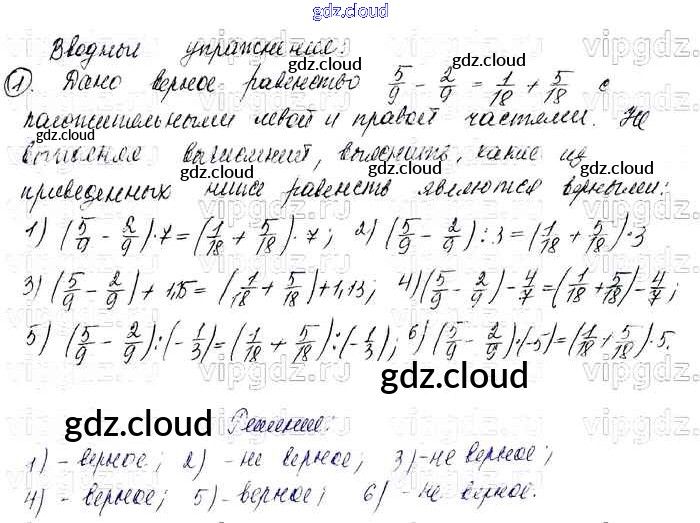 gdz.cloud
Вводные упражнения:
1. Дано верное равенство 5/9 - 2/9 = 1/18 + 5/18 с
gdz.cloud
положительными левой и правой частями. Не
выполняя вычислений, выяснить, какие из
приведенных ниже равенств являются верными:
1) (5/9 - 2/9)·7 = (1/18 + 5/18)·7; 2) (5/9 - 2/9):3 = (1/18 + 5/18)·3
3) (5/9 - 2/9) + 1,15 = (1/18 + 5/18) + 1,13; 4) (5/9 - 2/9) - 4/7 = (1/18 + 5/18) - 4/7;
5) (5/9 - 2/9):(-1/3) = (1/18 + 5/18):(-1/3); 6) (5/9 - 2/9):(-5) = (1/18 + 5/18)·5.
gdz.cloud
gdz.cloud
Решение:
1) - верное; 2) - не верное; 3) - не верное;
4) - верное; 5) - верное; 6) - не верное.
gdz.cloud